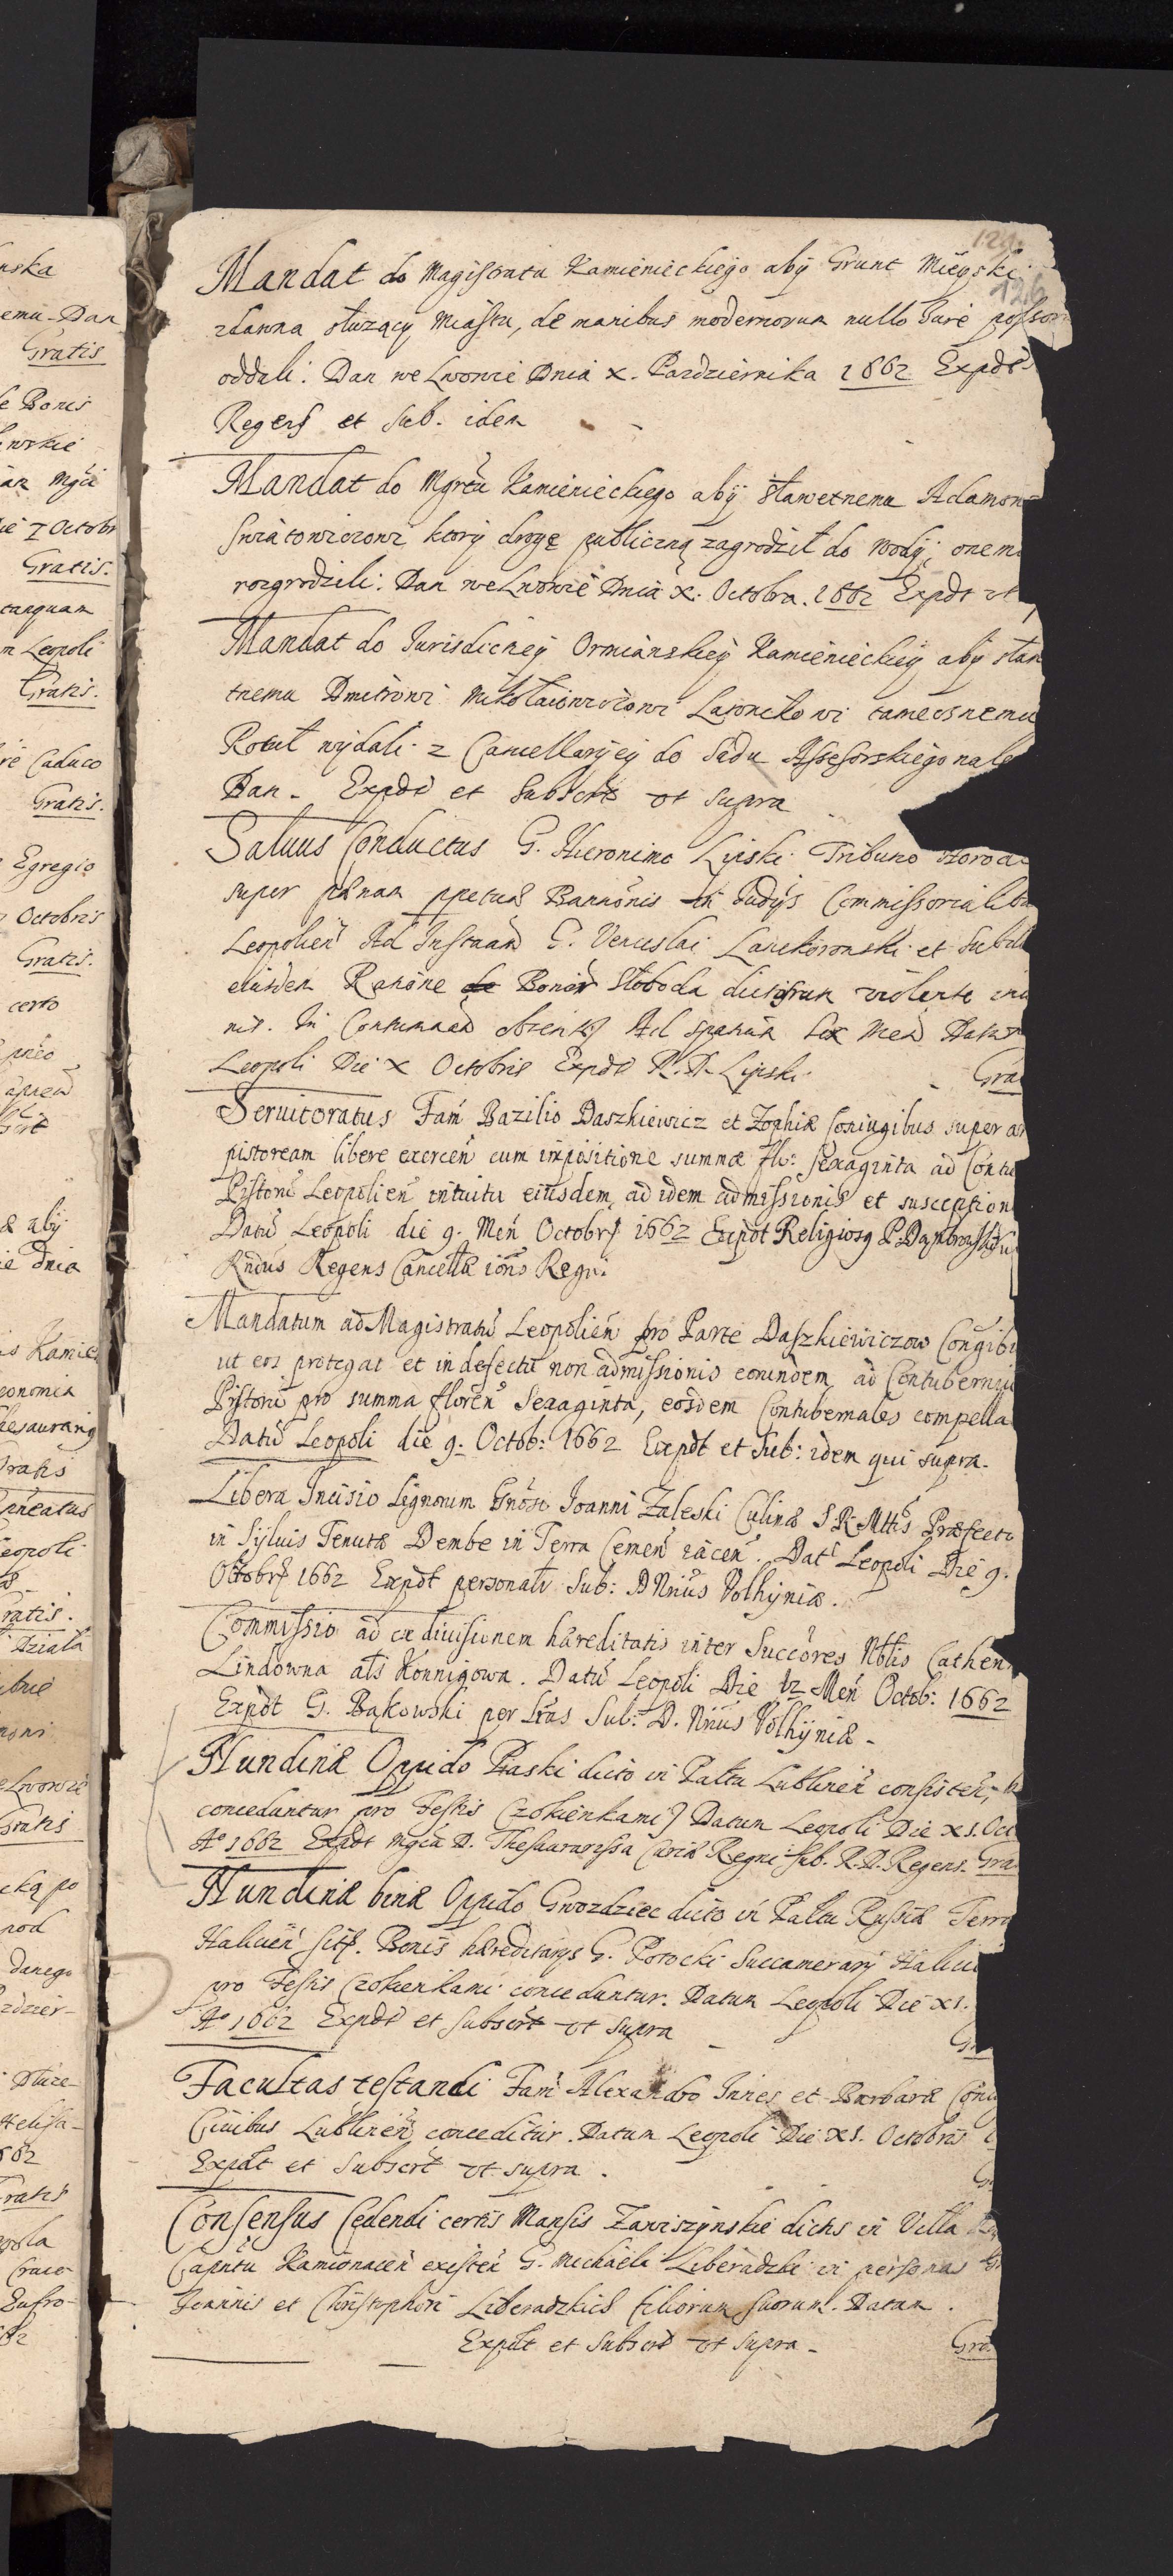 nska
emu. Dan
Gratis
e Bonis
Gratis.
tanquam
m Leopoli
Gratis.
re Caduco
Gratis.
Egregio
Octobris
Gratis.
certo
aby
ie Dnia
is Kamie
conomia
Gratis
Leopoli
Gratis.
Działa
Lwowie
Gratis
cką po
pod
danego
Gratis
126
Mandat do Magistratu Kamienieckiego aby Grunt Mieyski
zdawna słuzący Miastu, de manibus modernorum nullo Iure possor
oddali. Dan we Lwowie Dnia x. Pazdziernika 1662 Expdt
Regens et sub. idem
Mandat do Mgrtu Kamienieckiego aby Sławetnemu Adamow
Swiatowiczowi ktory drogę publiczną zagrodził do wody, onem
rozgrodzili. Dan we Lwowie Dnia x. Octobra. 1662 Expdt ut
Mandat do Iurisdicney Ormianskiey Kamienieckiey aby sław
tnemu Dmitrowi Mikołaiowiczowi tamecznemu
Rotuł wydali z Cancellaryey do Sądu Assesorskiego nale
Dan. Expdt et Subscrt ut supra
Saluus Conductus G. Hieronimo Lipski Tribuno Horod
super pænam ppetuæ Bannonis in Iudijs Commissorialibu
Leopolien Ad Instnam G. Venceslai Lanckoronski et Subdt
eiusdem Ratione de Bonor Słoboda dictorum violente
nis. In Contumaam obtent Ad spatium Sex Men Datum
Leopoli Die x Octobris Expdt R. D. Lipski.
Gra
Seruitoratus Fam Bazilio Daszkiewicz et Zophiæ Coniugibus super ar
pistoream libere exercen cum impositione summæ flo: sexaginta ad Contu
Pistorū Leopolien intuitu eiusdem, ad idem admissionis et susception
Datū Leopoli die 9. Men Octobr 1662 Expdt Religiosq P. Dąmbrowski Su
Rndus Regens Cancellæ ions Regni.
Mandatum ad Magistratū Leopolien pro Parte Daszkiewiczow Congibu
ut eos protegat et in defectū non admissionis eorundem, ad Contuberniu
Pistorū pro summa floren Sexaginta, eosdem Contubernales compella
Datū Leopoli die 9. Octob: 1662 Expdt et Sub: idem qui supra.
Libera Incisio Lignorum Gnoso Ioanni Zaleski Culinæ S R Mttis Præfecto
in Syluis Tenutæ Dembe in Terra Cernen iacen. Dat Leopoli Die 9.
Octobr 1662 Expdt personalr Sub: D Nrius Volhyniæ.
Commissio ad exdiuisionem hæreditatis inter Succores Nblis Cathen
Lindowna als Konnigowa. Datū Leopoli Die 12 Men Octob: 1662
Expdt G. Bąkowski per Lras Sub: D. Nrius Volhyniæ.
Nundinæ Oppido Piaski dicto in Palttu Lublinen consisten,
conceduntur pro Festis (zokienkami) Datum Leopoli Die xi. Oct
Aº 1662 Expdt Mgca D. Thesaurarissa Curiæ Regni Sub. R. D. Regens. Gra
Nundinæ binæ Oppido Gwozdziec dicto in Palttu Russiæ Terra
Halicien sit. Bonis hæreditarijs G. Potocki Succamerarij Halicie
pro Festis (zokienkami conceduntur. Datum Leopoli Die xi.
Aº 1662 Expdt et Subscrt ut supra
Facultas testandi Fam Alexandro Innes et Barbaræ Coniu
Ciuibus Lublinen conceditur. Datum Leopoli Die xi. Octobris
Expdt et Subscrt ut supra.
Consensus Cedendi certis Mansis Zawiszynskie dictis in Villa
Capntu Kamionacen existen G. Michaeli Liberadzki in personas
Ioannis et Christophori Liberadzkich filiorum suorum. Datum.
Expdt et Subscrt ut supra.
Gra